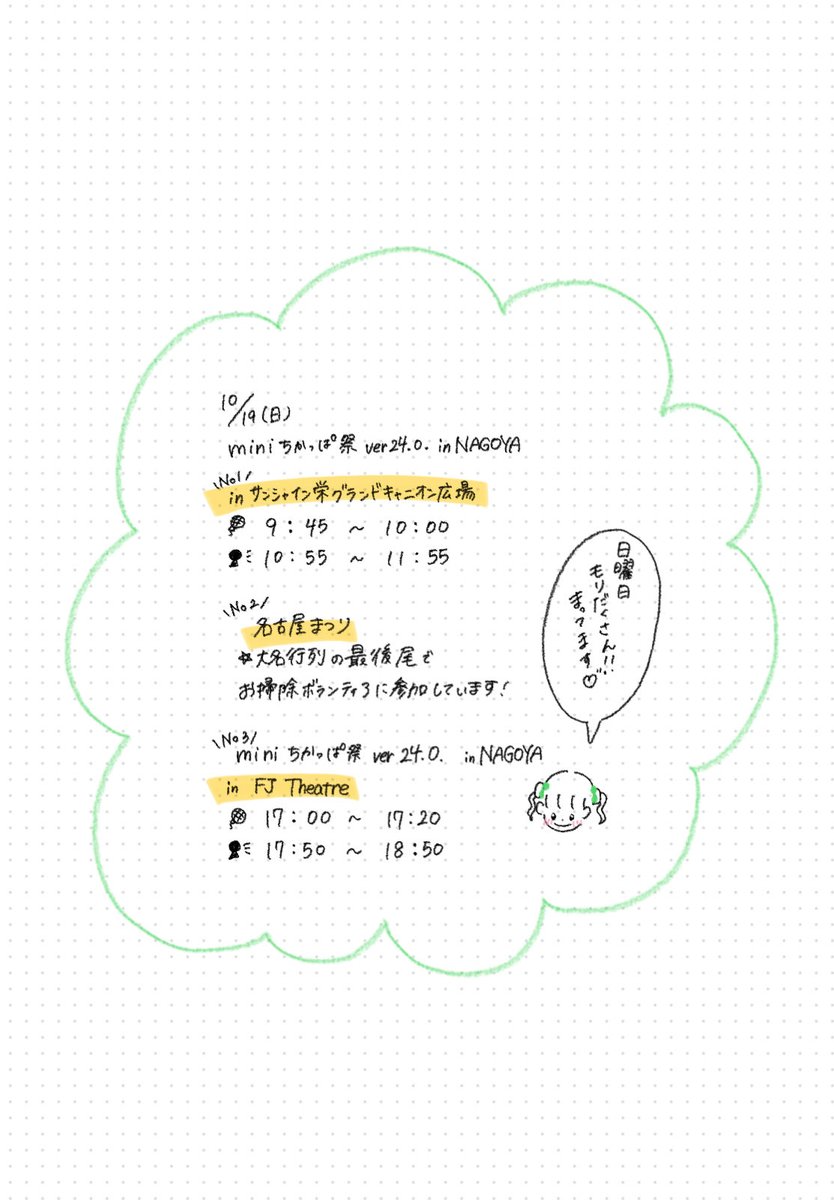 10/19(日)
mini ちかっぱ祭 ver24.0. in NAGOYA
\No1/
in サンシャイン栄グランドキャニオン広場
9:45 ~ 10:00
10:55 ~ 11:55
\No2/
名古屋まつり
☆大名行列の最後尾で
お掃除ボランティアに参加しています!
\No3/
mini ちかっぱ祭 ver 24.0. in NAGOYA
in FJ Theatre
17:00 ~ 17:20
17:50 ~ 18:50
日曜日
もりだくさん!!
まってます♡